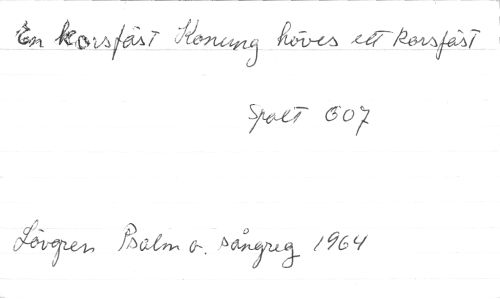 En korsfäst Konung höves ett korsfäst
Spalt 607
Lövgren Psalm o. sångreg 1964